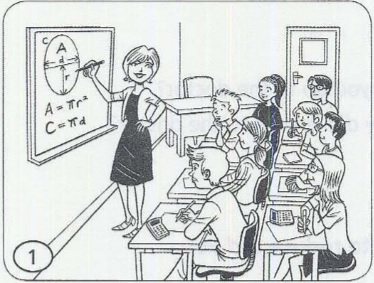 C
A
d
r
A = πr²
C = πd
1